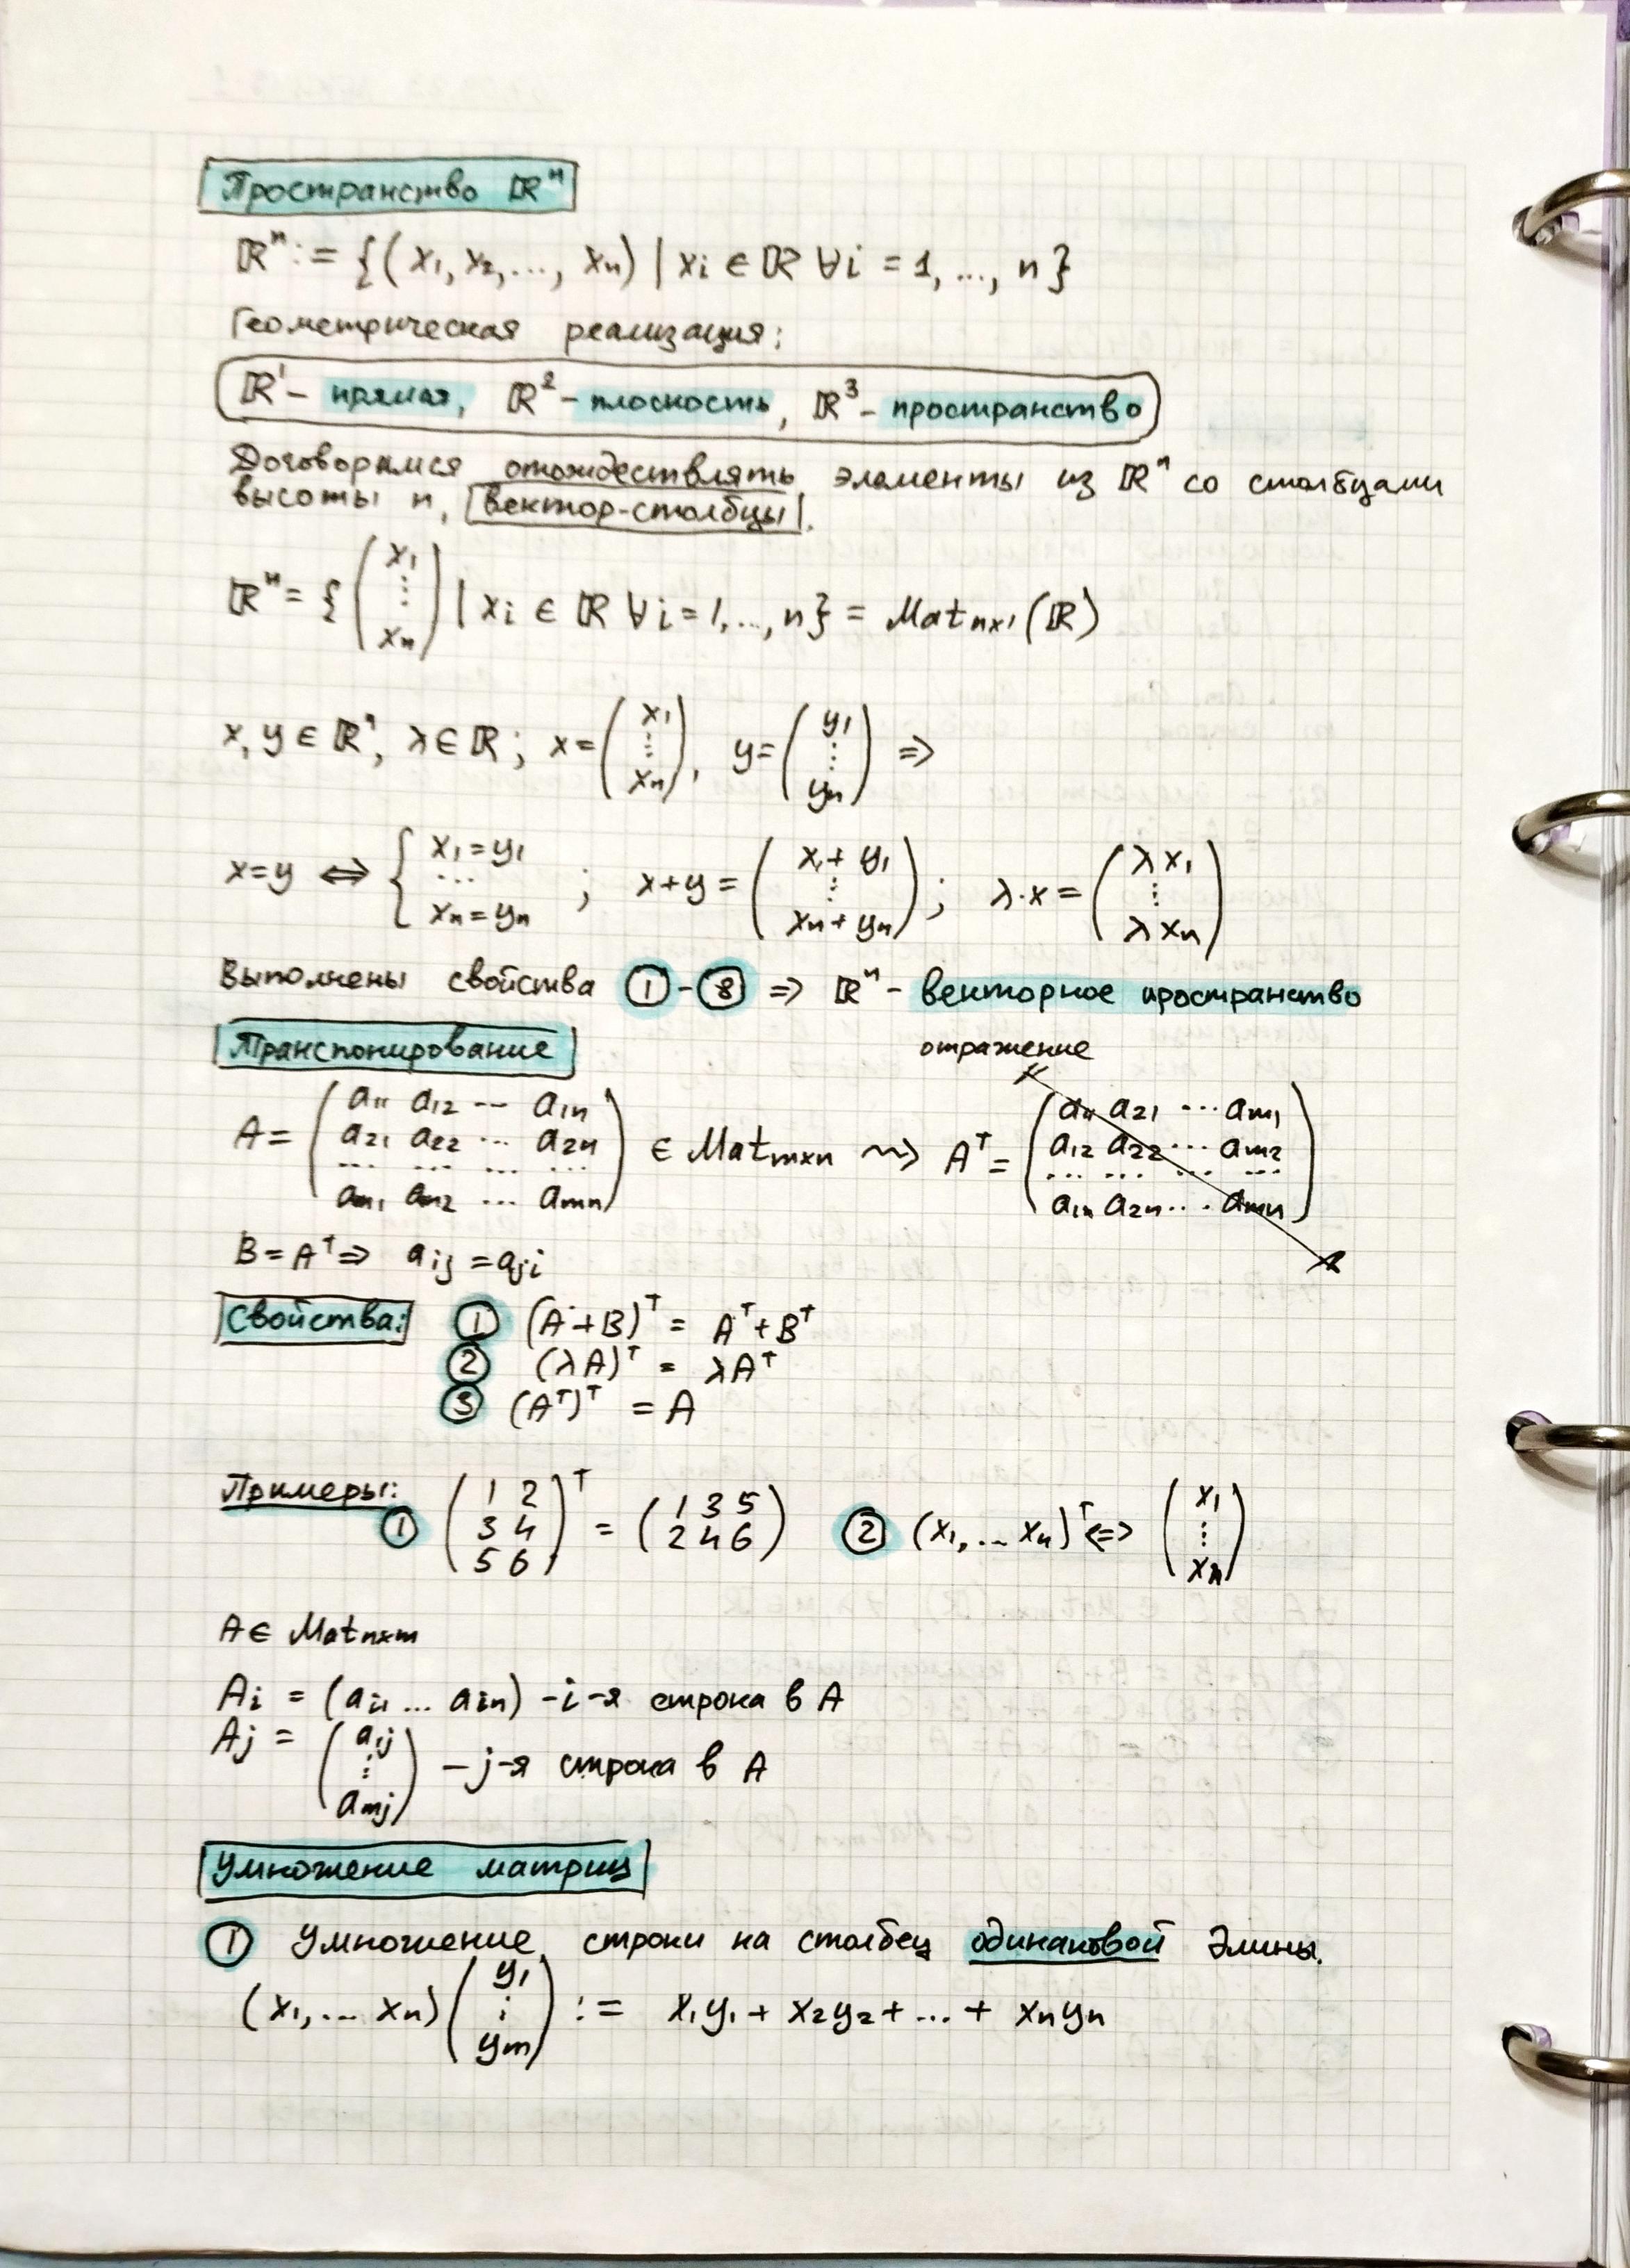 Пространство ℝⁿ
ℝⁿ := {(x₁, x₂, ..., xₙ) | xᵢ ∈ ℝ ∀i = 1, ..., n}
Геометрическая реализация:
ℝ¹ - прямая, ℝ² - плоскость, ℝ³ - пространство
Договоримся отождествлять элементы из ℝⁿ со столбцами
высоты n, вектор-столбцы.
ℝⁿ = { (x₁ ⋮ xₙ) | xᵢ ∈ ℝ ∀i = 1, ..., n} = Matₙₓ₁(ℝ)
x, y ∈ ℝⁿ, λ ∈ ℝ; x = (x₁ ⋮ xₙ), y = (y₁ ⋮ yₙ) ⇒
x = y ⇔ { x₁ = y₁ ... xₙ = yₙ ; x + y = (x₁ + y₁ ⋮ xₙ + yₙ); λ·x = (λx₁ ⋮ λxₙ)
Выполнены свойства ① - ⑧ ⇒ ℝⁿ - векторное пространство
Транспонирование
отражение
A = (a₁₁ a₁₂ ... a₁ₙ
a₂₁ a₂₂ ... a₂ₙ
... ... ... ...
aₘ₁ aₘ₂ ... aₘₙ) ∈ Matₘₓₙ ⇝ Aᵀ = (a₁₁ a₂₁ ... aₘ₁
a₁₂ a₂₂ ... aₘ₂
... ... ... ...
a₁ₙ a₂ₙ ... aₘₙ)
B = Aᵀ ⇒ aᵢⱼ = aⱼᵢ
Свойства: ① (A + B)ᵀ = Aᵀ + Bᵀ
② (λA)ᵀ = λAᵀ
③ (Aᵀ)ᵀ = A
Примеры:
① (1 2
3 4
5 6)ᵀ = (1 3 5
2 4 6) ② (x₁, ... xₙ)ᵀ ⇔ (x₁ ⋮ xₙ)
A ∈ Matₙₓₘ
Aᵢ = (aᵢ₁ ... aᵢₙ) - i-я строка в A
Aⱼ = (a₁ⱼ ⋮ aₘⱼ) - j-я строка в A
Умножение матриц
① Умножение строки на столбец одинаковой длины.
(x₁, ... xₙ)(y₁ ⋮ yₘ) := x₁y₁ + x₂y₂ + ... + xₙyₙ